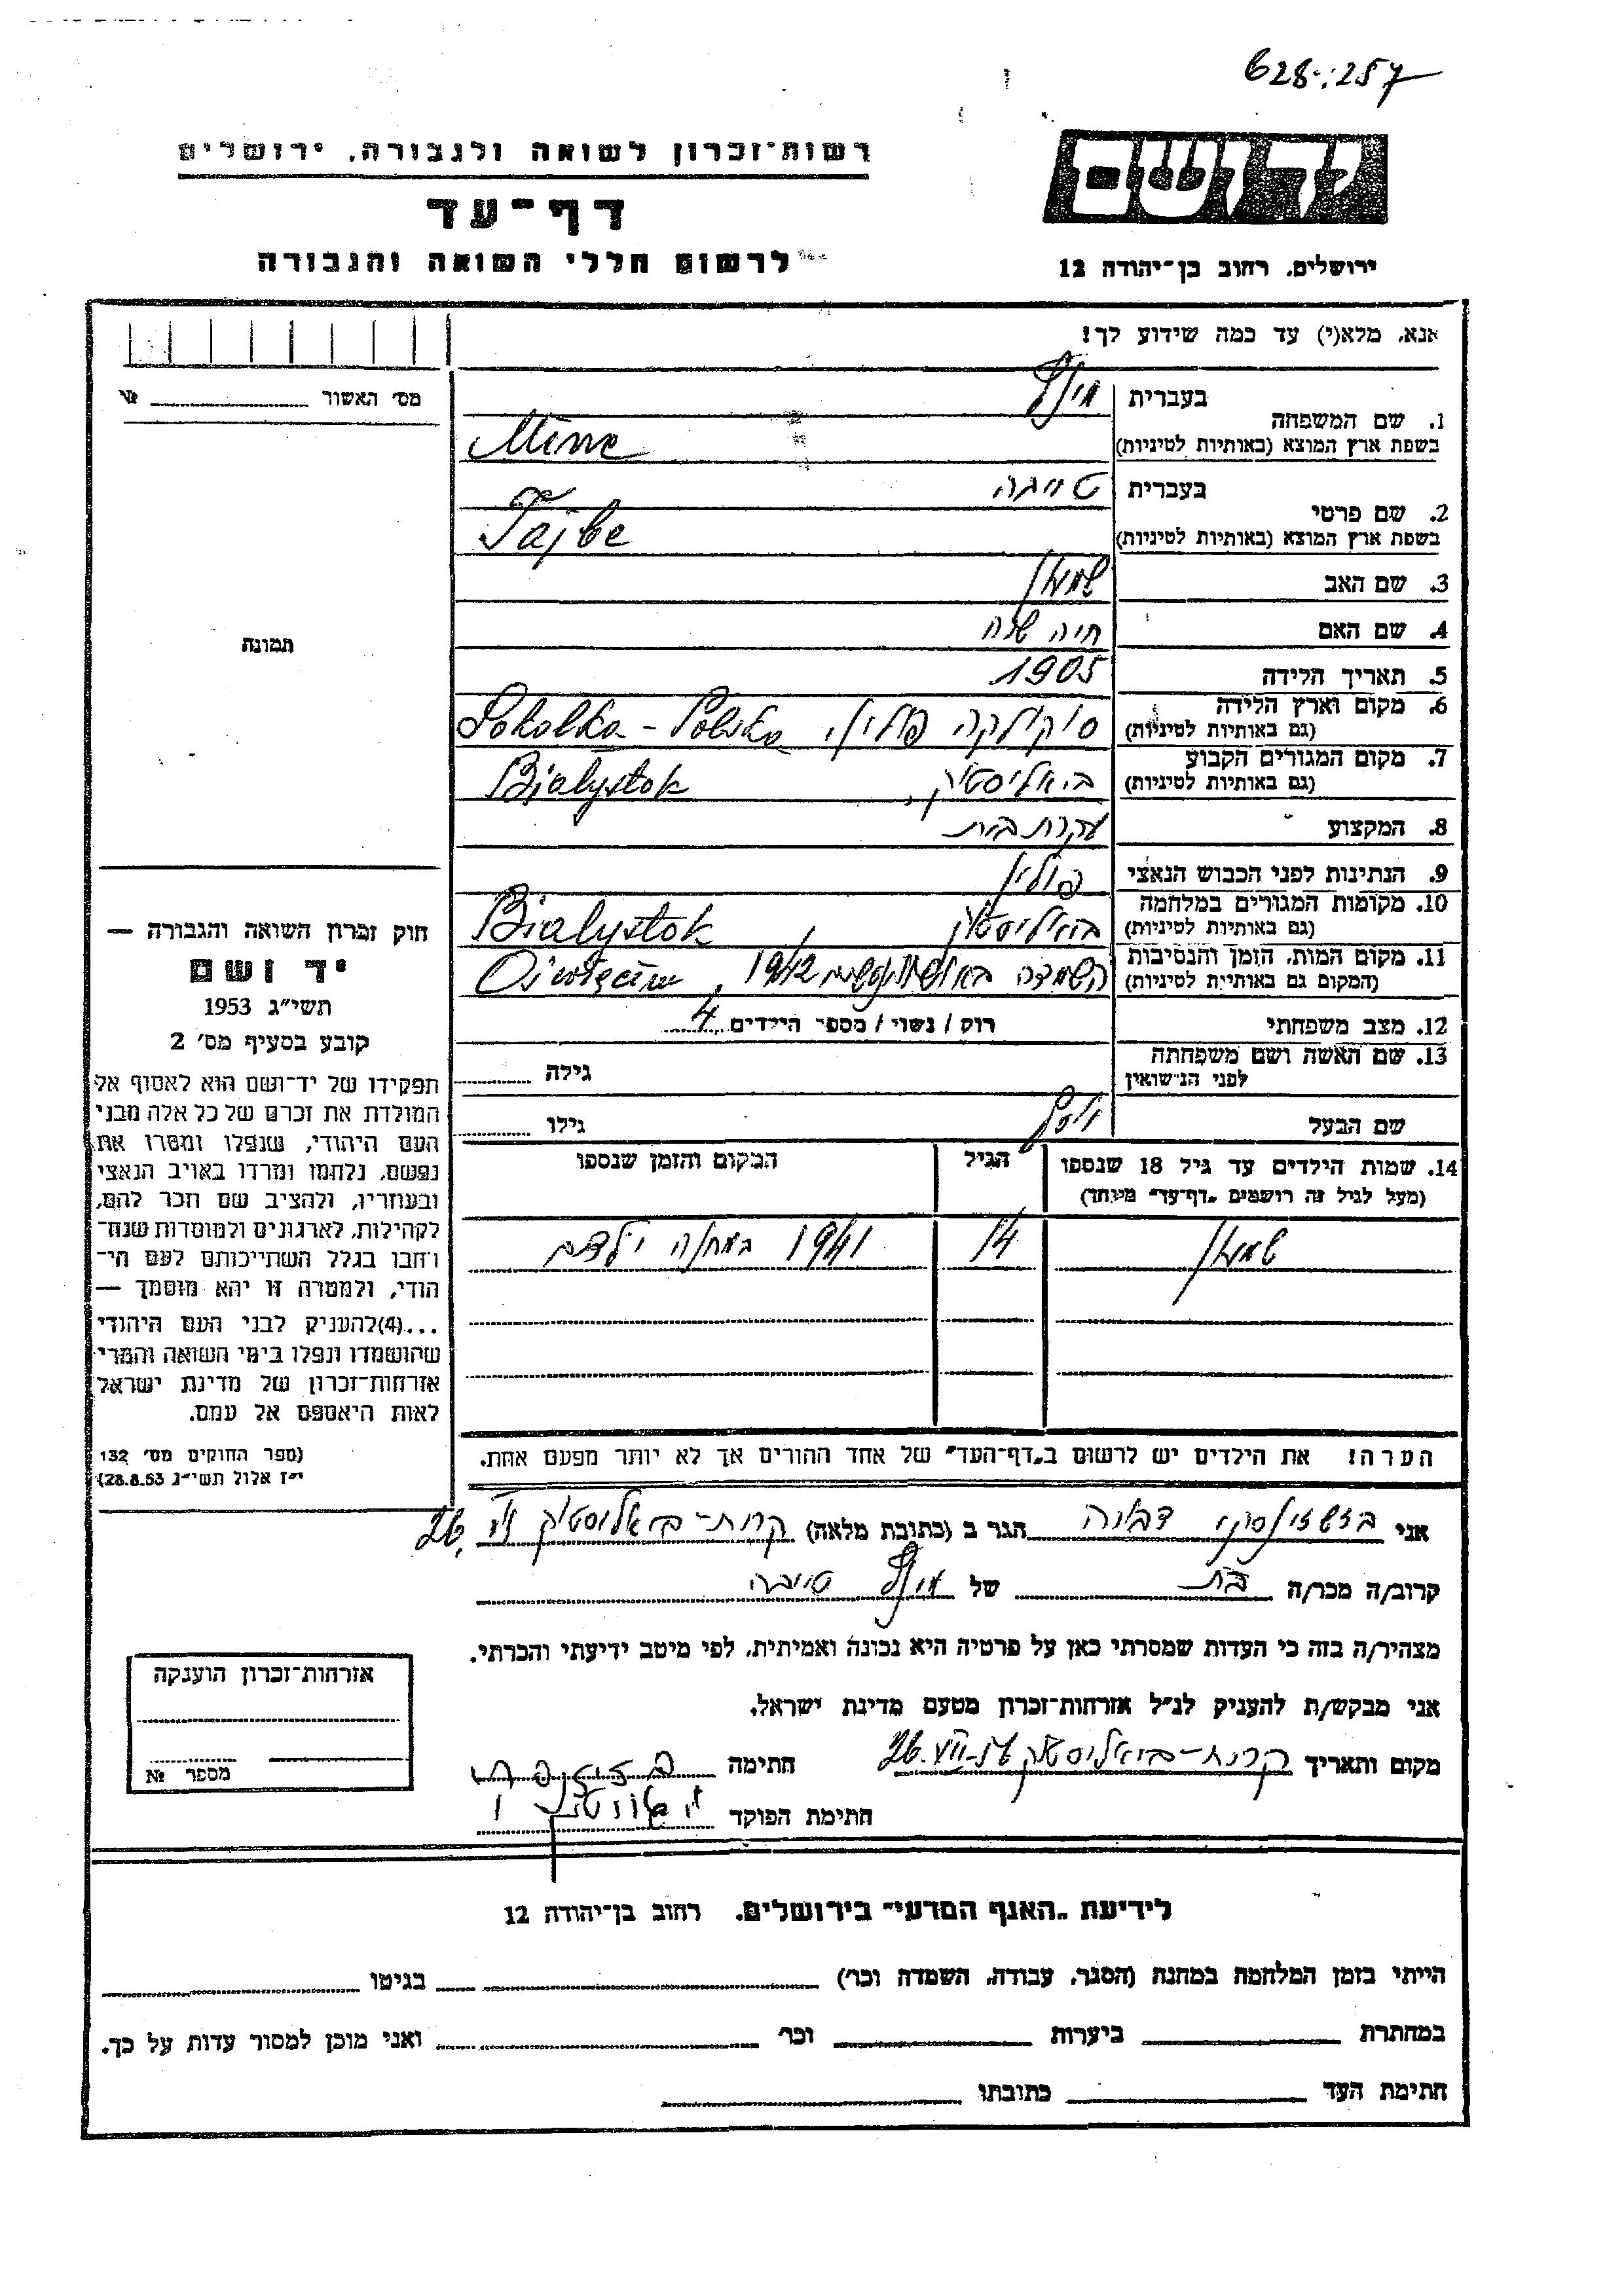 628-:257
רשות־זכרון לשואה ולגבורה, ירושלים
דף־עד
לרשום חללי השואה והגבורה
יד ושם
ירושלים, רחוב בן־יהודה 12
אנא, מלא(י) עד כמה שידוע לך!
מס׳ האשור № 
1. שם המשפחה
בעברית
בשפת ארץ המוצא (באותיות לטיניות) Minc
2. שם פרטי
בעברית טייבה
בשפת ארץ המוצא (באותיות לטיניות) Tajbe
3. שם האב שמעון
4. שם האם חיה שרה
5. תאריך הלידה 1905
6. מקום וארץ הלידה
(גם באותיות לטיניות) סוקולקה פולין, Sokolka - Polska
7. מקום המגורים הקבוע
(גם באותיות לטיניות) ביאליסטוק, Bialystok
8. המקצוע עקרת בית
9. הנתינות לפני הכבוש הנאצי פולין
10. מקומות המגורים במלחמה
(גם באותיות לטיניות) ביאליסטוק, Bialystok
11. מקום המות, הזמן והנסיבות
(המקום גם באותיות לטיניות) השמדה 1942, Oswięcim
12. מצב משפחתי רוק / נשוי / מספר הילדים 4
13. שם האשה ושם משפחתה
לפני הנישואין גילה
שם הבעל יוסף גילו
14. שמות הילדים עד גיל 18 שנספו
(מעל לגיל זה רושמים „דף־עד" מיוחד)
הגיל
המקום והזמן שנספו
שמעון 14 1941 במחנה ילדים
הערה! את הילדים יש לרשום ב„דף־העד" של אחד ההורים אך לא יותר מפעם אחת.
תמונה
חוק זכרון השואה והגבורה —
יד ושם
תשי״ג 1953
קובע בסעיף מס׳ 2
תפקידו של יד־ושם הוא לאסוף אל
המולדת את זכרם של כל אלה מבני
העם היהודי, שנפלו ומסרו את
נפשם, נלחמו ומרדו באויב הנאצי
ובעוזריו, ולהציב שם וזכר להם,
לקהילות, לארגונים ולמוסדות שנח־
רבו בגלל השתייכותם לעם הי־
הודי, ולמטרה זו יהא מוסמך —
...(4)להעניק לבני העם היהודי
שהושמדו ונפלו בימי השואה והמרי
אזרחות־זכרון של מדינת ישראל
לאות היאספם אל עמם.
(ספר החוקים מס׳ 132
י״ז אלול תשי״ג 28.8.53)
אני דבורה הגר ב (כתובת מלאה) קרית-ביאליסטוק 26,
קרוב/ה מכר/ה בת של טייבה
מצהיר/ה בזה כי העדות שמסרתי כאן על פרטיה היא נכונה ואמיתית, לפי מיטב ידיעתי והכרתי.
אני מבקש/ת להעניק לנ״ל אזרחות־זכרון מטעם מדינת ישראל.
מקום ותאריך קרית-ביאליסטוק 26.VII.57 חתימה
חתימת הפוקד
אזרחות־זכרון הוענקה
מספר №
לידיעת „האגף המדעי" בירושלים, רחוב בן־יהודה 12
הייתי בזמן המלחמה במחנה (הסגר, עבודה, השמדה וכר׳) בגיטו
במחתרת ביערות וכר׳ ואני מוכן למסור עדות על כך.
חתימת העד כתובתו